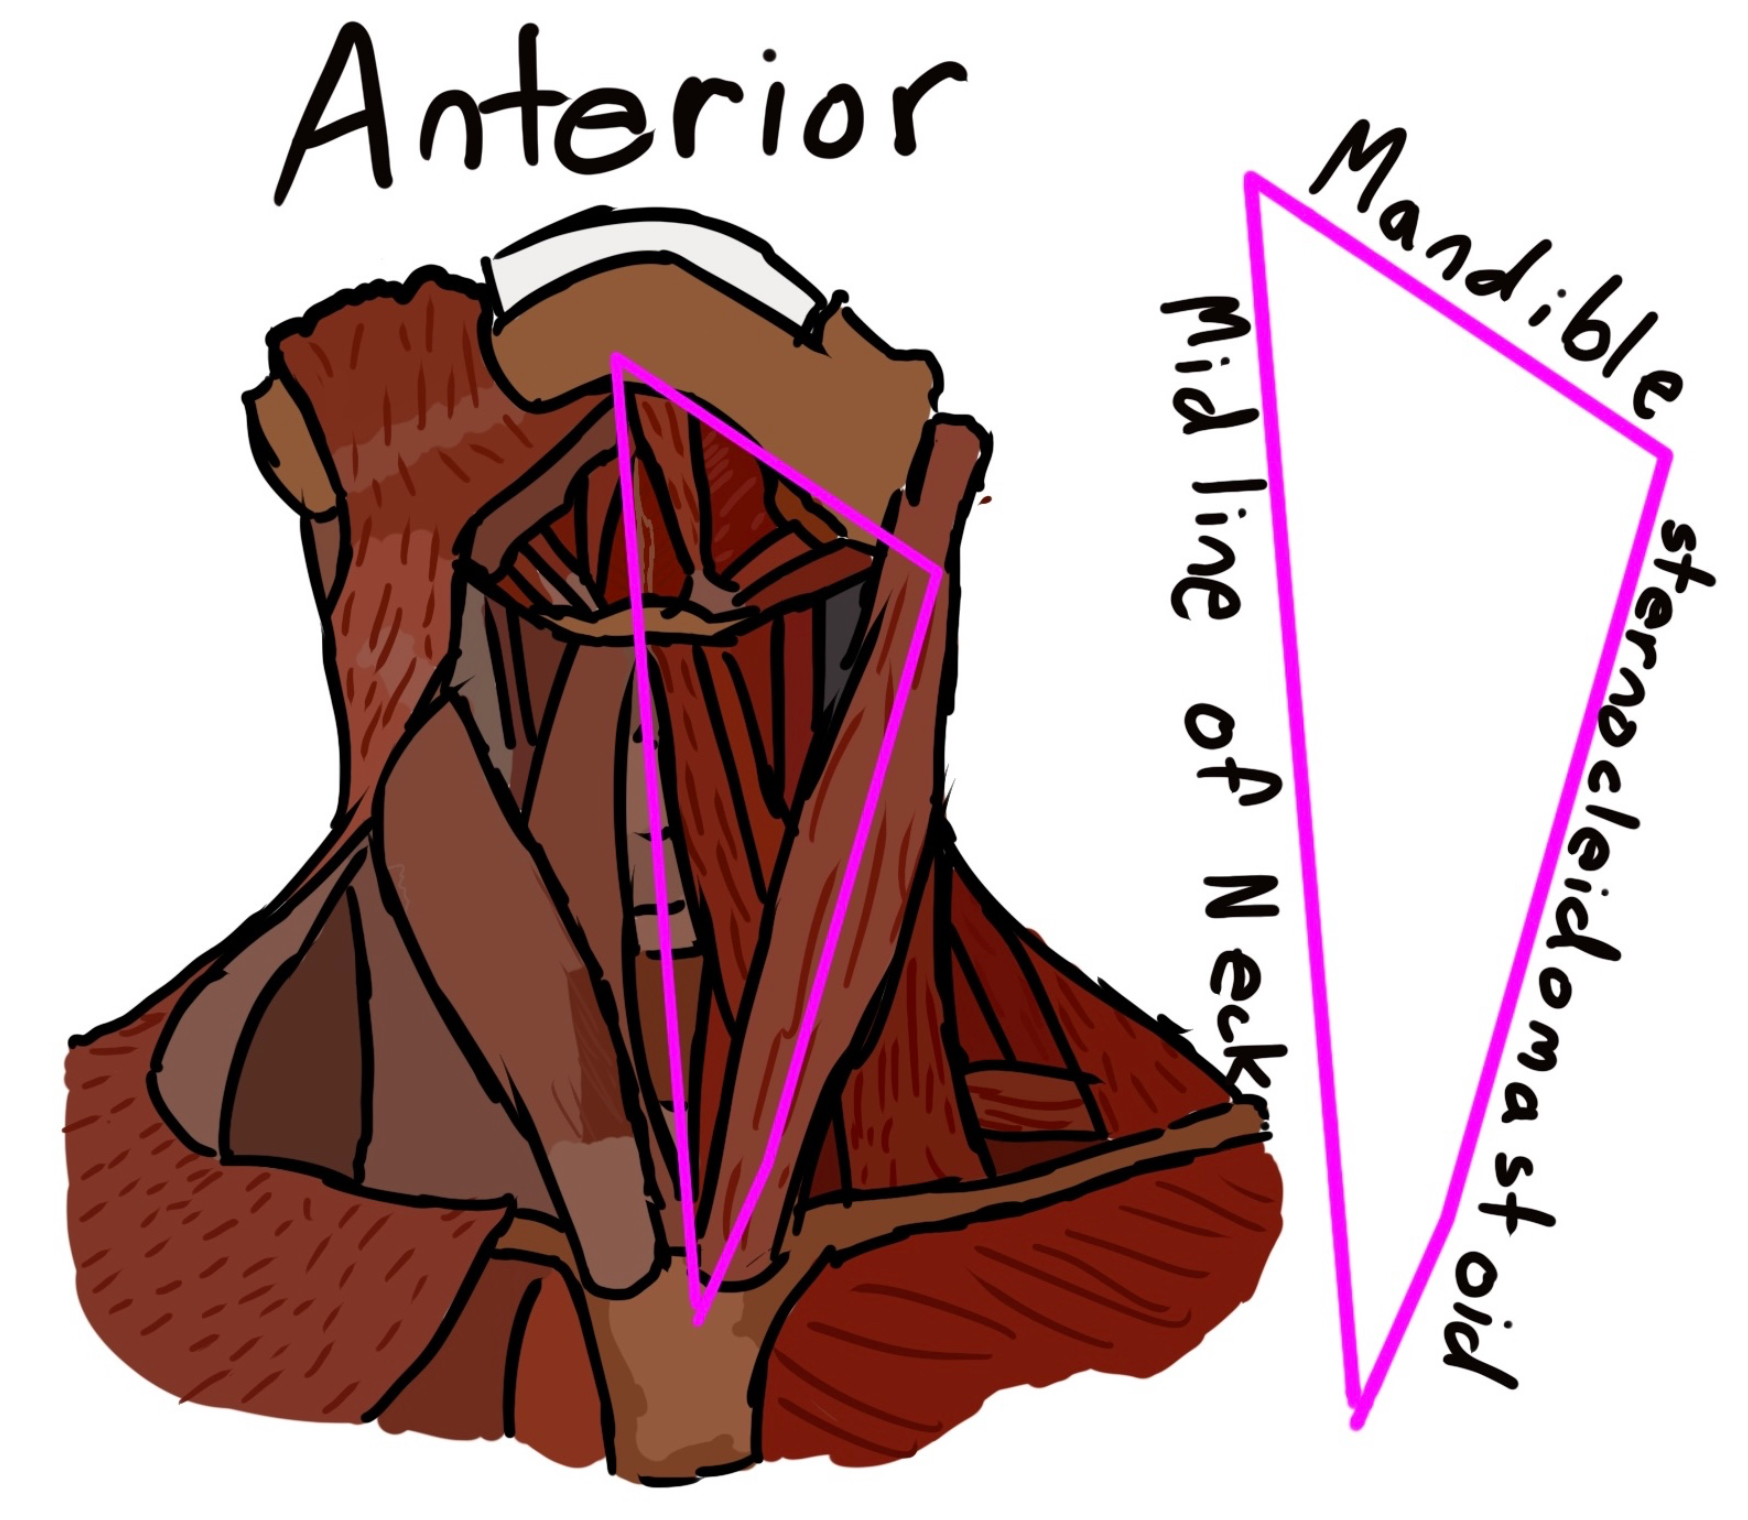 Anterior
Mandible
Midline of Neck
sternocleidomastoid